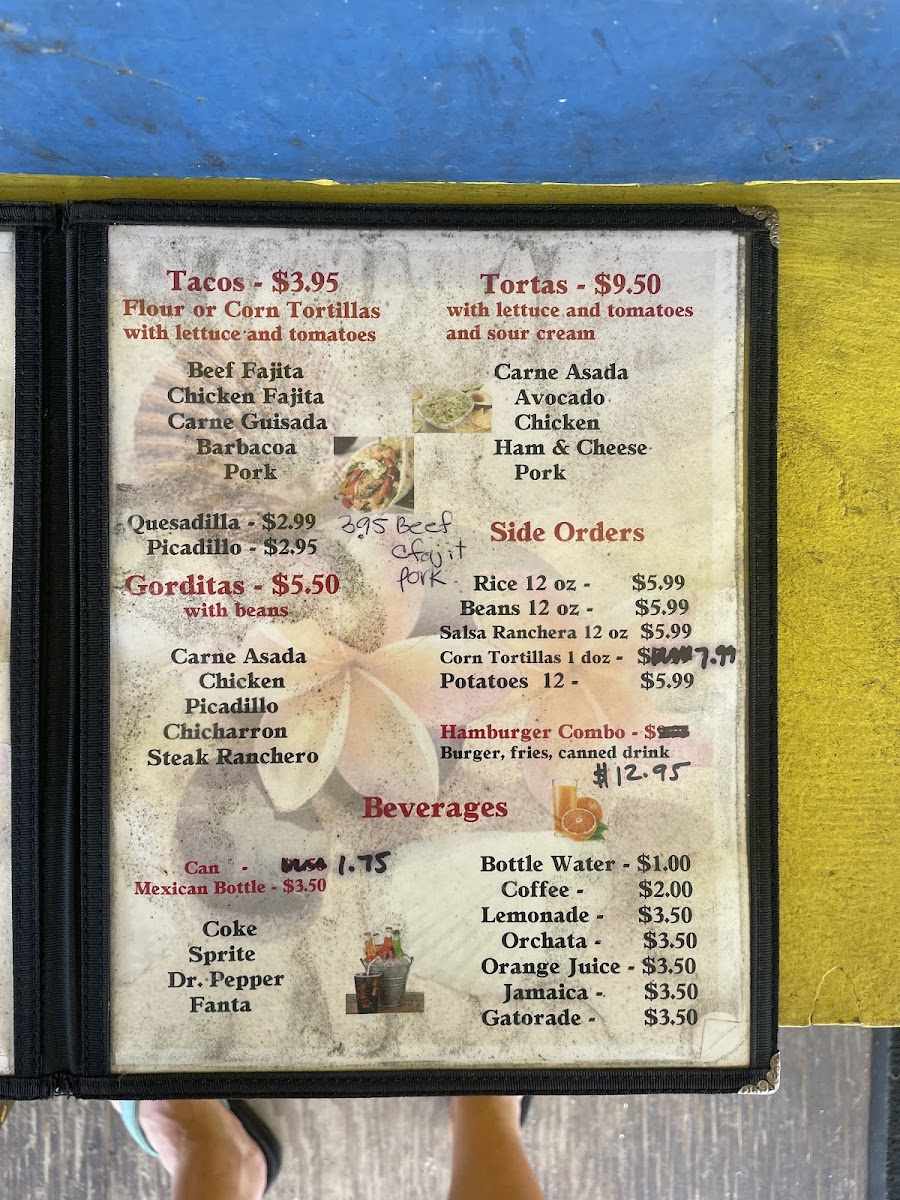 Tacos - $3.95
Flour or Corn Tortillas
with lettuce and tomatoes
Beef Fajita
Chicken Fajita
Carne Guisada
Barbacoa
Pork
Quesadilla - $2.99
Picadillo - $2.95
3.95 Beef
Cfajit
pork
Gorditas - $5.50
with beans
Carne Asada
Chicken
Picadillo
Chicharron
Steak Ranchero
Tortas - $9.50
with lettuce and tomatoes
and sour cream
Carne Asada
Avocado
Chicken
Ham & Cheese
Pork
Side Orders
Rice 12 oz - $5.99
Beans 12 oz - $5.99
Salsa Ranchera 12 oz $5.99
Corn Tortillas 1 doz - $ 7.99
Potatoes 12 - $5.99
Hamburger Combo - $
Burger, fries, canned drink
$12.95
Beverages
Can - 1.75
Mexican Bottle - $3.50
Coke
Sprite
Dr. Pepper
Fanta
Bottle Water - $1.00
Coffee - $2.00
Lemonade - $3.50
Orchata - $3.50
Orange Juice - $3.50
Jamaica - $3.50
Gatorade - $3.50